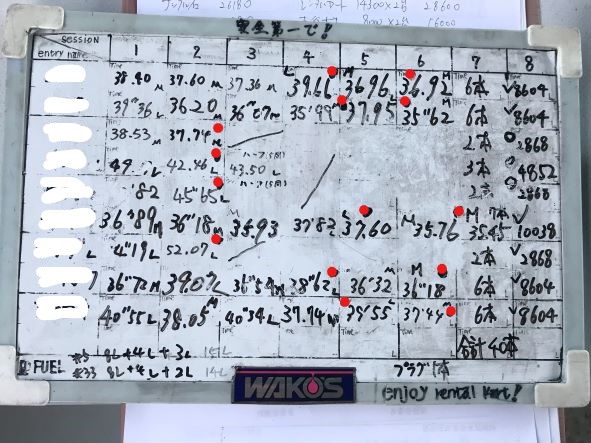 26180
14300×2ｹ 28600
16000
安全第一で!
session
entry name
1 2 3 4 5 6 7 8
38.40 M 37.60 M 37.36 M 39.66 M 36.96 M 36.92 M 6本 ✓8604
39"36 L 36.20 M 36"07 M 35'99 M 37.95 35"62 M 6本 ✓8604
38.53 M 37.74 M 2本 2868
L 42.46 L 43.50 L 3本 4852
'82 45"65 L 2868
36"89 M 36"18 M 35.93 37'82 L 37.60 M 35.76 M 35.45 7本 ✓10038
4"19 L 52.07 L 2本 ✓2868
36"72 M 39.07 L 36"54 M 38"62 L 36"32 M 36"18 6本 ✓8604
40"55 L 38.05 M 40"34 L 37.74 M 37'44 6本 ✓8604
合計40本
FUEL #3 8L+4L+3L
#33 8L+4L+2L 14L
プラグ1本
WAKO'S
enjoy rental kart!